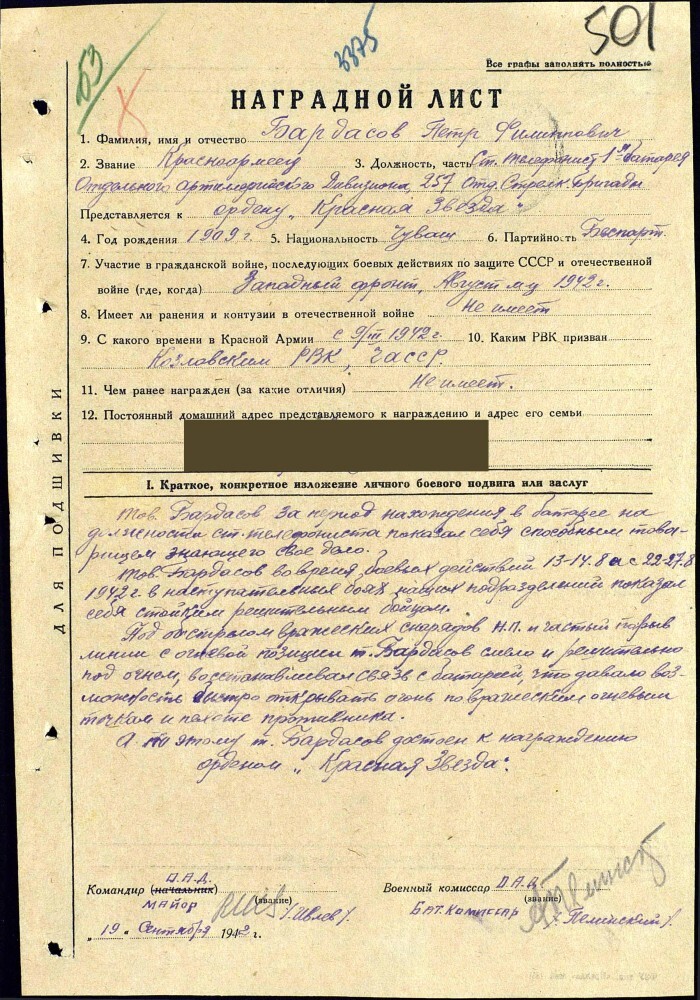 53
3375
501
Все графы заполнять полностью
НАГРАДНОЙ ЛИСТ
1. Фамилия, имя и отчество Бардасов Петр Филиппович
2. Звание Красноармеец 3. Должность, часть Ст. телефонист 1й батареи
Отдельного артиллерийского Дивизиона, 257 Отд. Стрелк. бригады
Представляется к ордену „Красная Звезда"
4. Год рождения 1909 г. 5. Национальность Чуваш 6. Партийность Беспарт.
7. Участие в гражданской войне, последующих боевых действиях по защите СССР и отечественной
войне (где, когда) Западный фронт, Август м-ц 1942 г.
8. Имеет ли ранения и контузии в отечественной войне Не имеет
9. С какого времени в Красной Армии с 9/III 1942 г. 10. Каким РВК призван
Козловским РВК, ЧАССР.
11. Чем ранее награжден (за какие отличия) Не имеет.
12. Постоянный домашний адрес представляемого к награждению и адрес его семьи
ДЛЯ ПОДШИВКИ
I. Краткое, конкретное изложение личного боевого подвига или заслуг
Тов. Бардасов за период нахождения в батарее на
должности ст. телефониста показал себя способным това-
рищем знающего свое дело.
Тов. Бардасов во время боевых действий 13-14.8 и с 22-27.8
1942 г. в наступательных боях наших подразделений показал
себя стойким решительным бойцом.
Под обстрелом вражеских снарядов Н.П. и частый порыв
линии с огневой позиции т. Бардасов смело и решительно
под огнем, восстанавливал связь с батареей, что давало воз-
можность быстро открывать огонь по вражеским огневым
точкам и пехоте противника.
А по этому т. Бардасов достоен к награждению
орденом „Красная Звезда".
О.А.Д.
Командир (начальник) Военный комиссар О.А.Д.
майор (звание) /Ивлев/. Бат. Комиссар (звание)
„19" Сентября 1942 г.